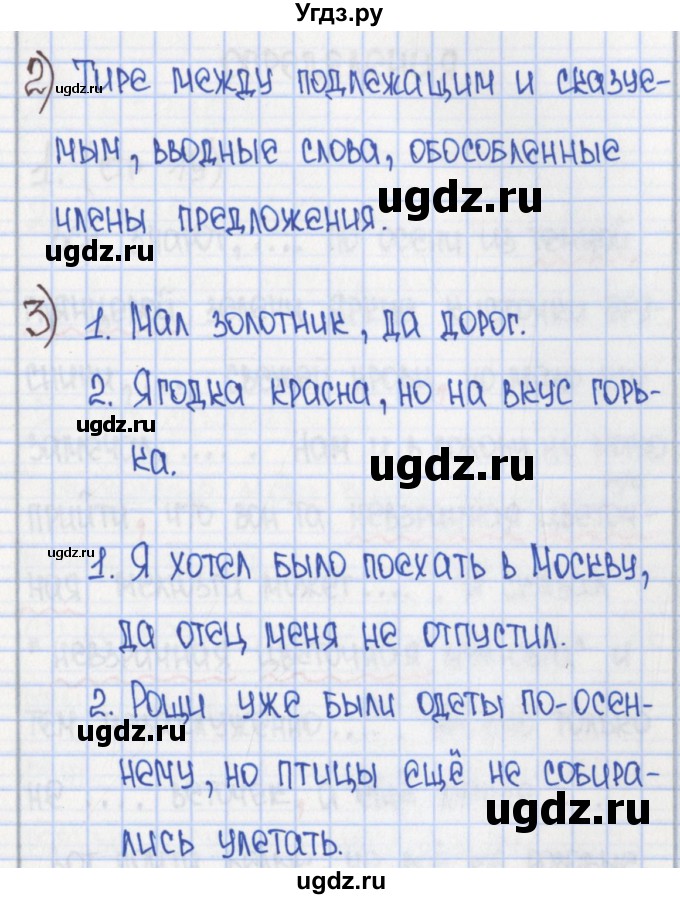 Угдз.ру
2) Тире между подлежащим и сказуе-
ugdz.ru
мым, вводные слова, обособленные
ugdz.ru
члены предложения.
ugdz.ru
3) 1. Мал золотник, да дорог.
2. Ягодка красна, но на вкус горь-
ugdz.ru
ка.
ugdz.ru
ugdz.ru
1. Я хотел было поехать в Москву,
да отец меня не отпустил.
2. Рощи уже были одеты по-осен-
ugdz.ru
нему, но птицы ещё не собира-
ugdz.ru
лись улетать.
ugdz.ru